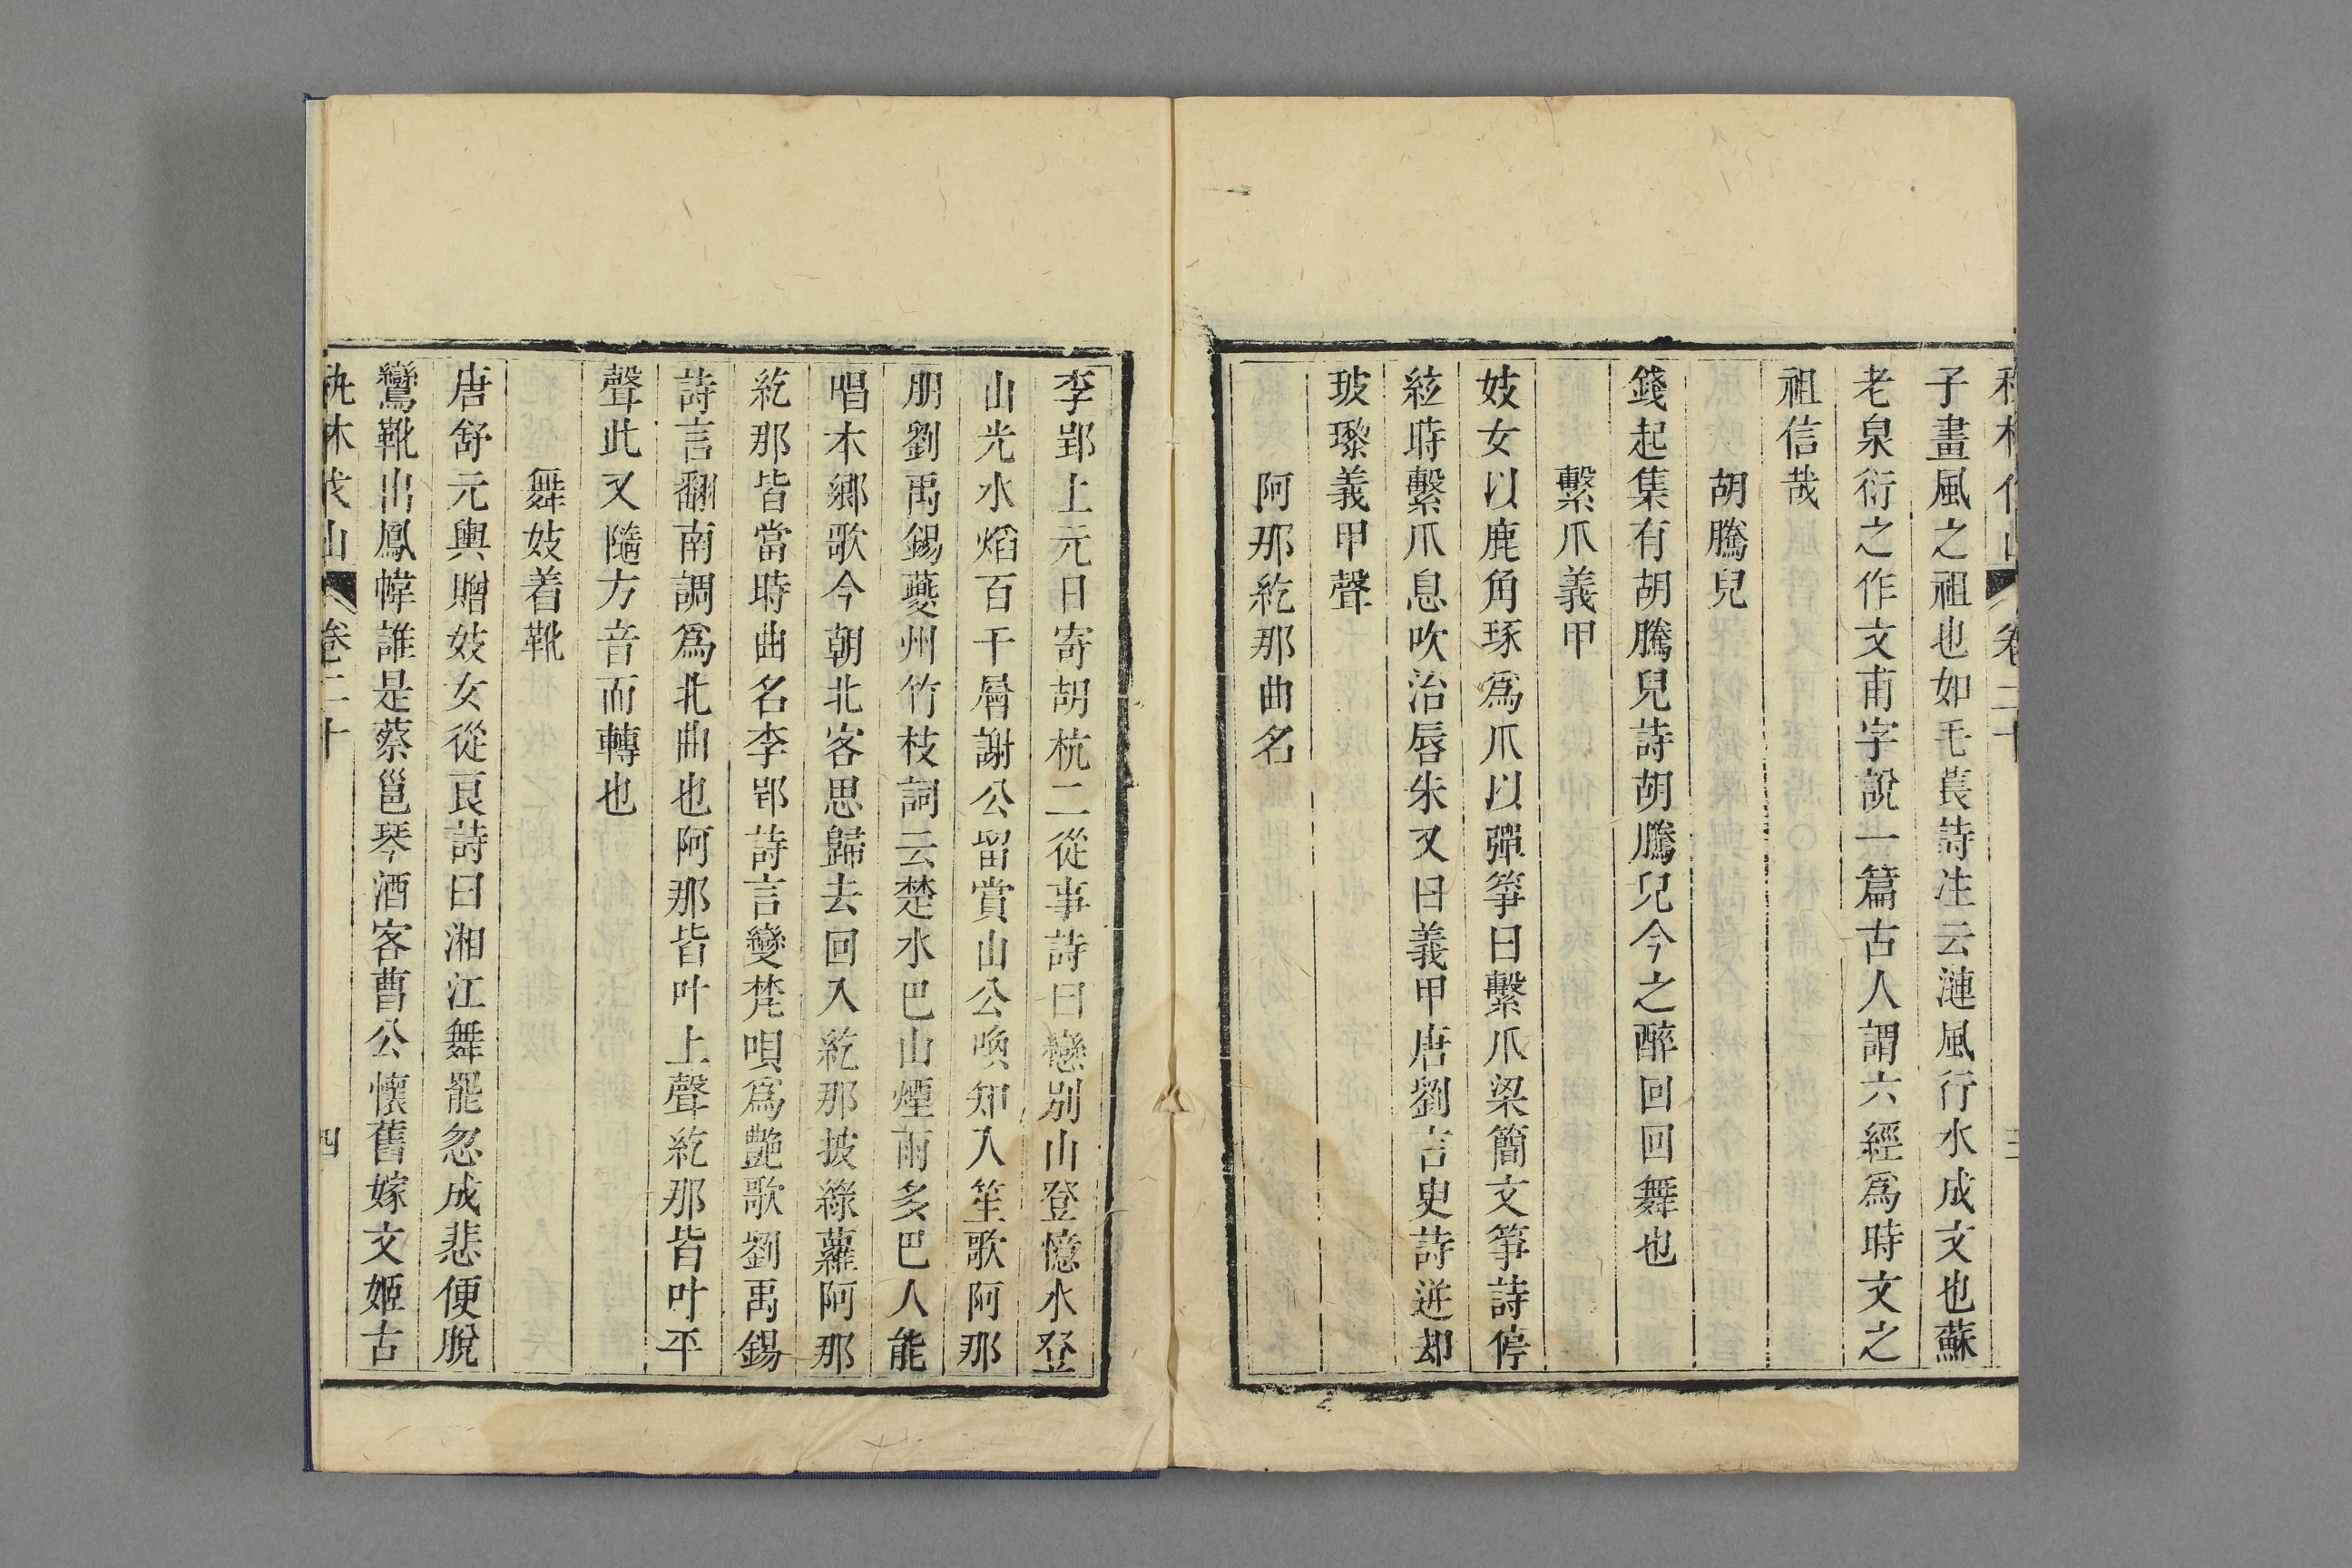 子畫風之祖也如毛萇詩注云漣風行水成文也蘇
老泉衍之作文甫字說一篇古人謂六經爲時文之
祖信哉
胡騰兒
錢起集有胡騰兒詩胡騰兒今之醉回回舞也
繫爪義甲
妓女以鹿角琢爲爪以彈箏曰繫爪梁簡文箏詩停
絃時繫爪息吹治唇朱又曰義甲唐劉言史詩迸却
玻瓈義甲聲
阿那紇那曲名
李郢上元日寄胡杭二從事詩曰戀別山登憶水登
山光水焰百千層謝公留賞山公喚知入笙歌阿那
朋劉禹錫夔州竹枝詞云楚水巴山煙雨多巴人能
唱本鄉歌今朝北客思歸去回入紇那披綠蘿阿那
紇那皆當時曲名李郢詩言變梵唄爲艶歌劉禹錫
詩言翻南調爲北曲也阿那皆叶上聲紇那皆叶平
聲此又隨方音而轉也
舞妓着靴
唐舒元輿贈妓女從良詩曰湘江舞罷忽成悲便脫
鸞靴出鳳幃誰是蔡邕琴酒客曹公懷舊嫁文姬古
卷二十
四